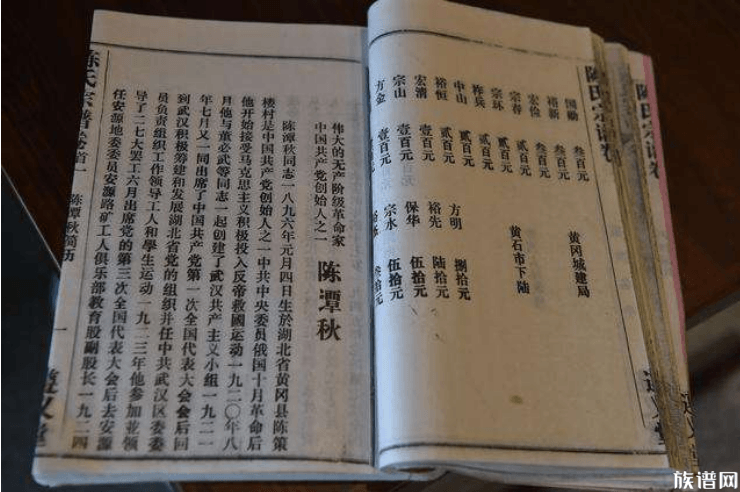 陳氏宗谱卷
陳氏宗谱卷
国勋 叁百元 黄冈城建局
裕新 叁百元
宏俭 叁百元
宗春 贰百元 黄石市下陆
宗环 贰百元
祚兵 贰百元
中山 贰百元 方明 捌拾元
裕恒 贰百元 裕先 陆拾元
宏清 壹百元 保华 伍拾元
宗山 壹百元 宗水 伍拾元
方金 壹百元 叁拾元
伟大的无产阶级革命家
中国共产党创始人之一
陈潭秋
陈潭秋同志一八九六年元月四日生於湖北省黄冈县陈策
楼村是中国共产党创始人之一中共中央委员俄国十月革命后
他开始接受马克思主义积极投入反帝救國运动一九二〇年八
月他与董必武等同志一起创建了武汉共产主义小组一九二一
年七月又一同出席了中国共产党第一次全国代表大会会后回
到武汉积极筹建和发展湖北省党的组织并任中共武汉区委委
员负责组织工作领导工人和學生运动一九二三年他参加並领
导了二七大罢工六月出席党的第三次全国代表大会后去安源
任安源地委委员安源路矿工人俱乐部教育股副股长一九二四
陈氏宗谱卷首一 陈潭秋简历 一 義堂
族谱网